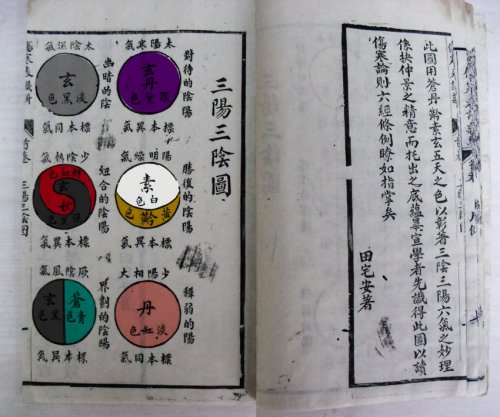 此圖用蒼丹黅素玄五天之色以彰著三陰三陽六氣之妙理
像抉仲景之精意而托出之底蘊畢宣學者先識得此圖以讀
傷寒論則六經條例瞭如指掌矣
田宅安著
三陽三陰圖
對待的陰陽
太陽寒氣
玄丹
標本同氣
勝復的陰陽
陽明燥氣
素
白色
黅
黃色
標本異氣
弱的陰陽
少陽相火
丹
淡紅色
標本同氣
幽暗的陰陽
太陰濕氣
玄
淡黑色
標本同氣
組合的陰陽
少陰熱氣
玄
標本異氣
界劃的陰陽
厥陰風氣
蒼
青色
玄
黑色
標本異氣
三陽三陰圖